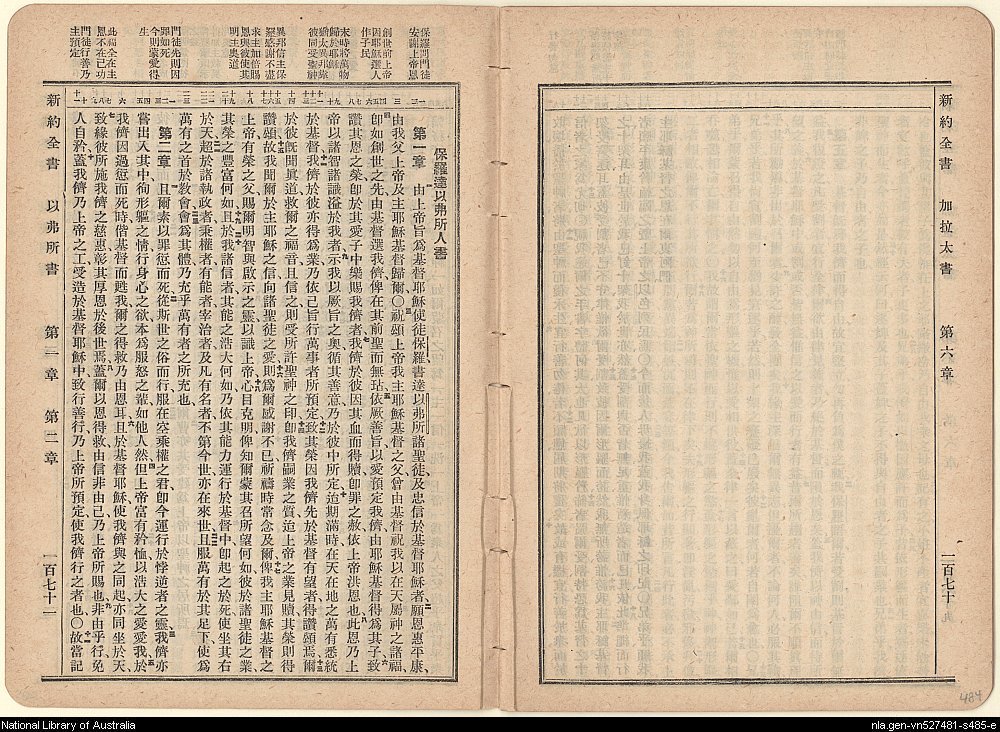 新約全書 加拉太書 第六章 一百七十
484
保羅問門徒
安謝上帝恩
創世前上帝
因耶穌選人
作子民
末時將萬物
歸於耶穌
猶太異邦緣
彼同受聖神
異邦信主保
羅感謝不盡
求主加倍賜
恩與彼使其
明主奧道
門徒先則因
罪如死
今則蒙愛得
生
此福全在主
恩不在己功
門徒行善乃
主預定
保羅達以弗所人書
第一章 由上帝旨爲基督耶穌使徒保羅書達以弗所諸聖徒、及忠信於基督耶穌者、願恩惠平康、
由我父上帝及主耶穌基督歸爾、〇祝頌上帝我主耶穌基督之父、曾由基督祝我以在天屬神之諸福、
卽如創世之先、由基督選我儕、俾在其前聖而無玷、依厥善旨、以愛預定我儕、由耶穌基督得爲其子、致
讚其恩之榮、卽於其愛子中、樂賜我儕者、我儕於彼因其血而得贖、卽罪之赦、依上帝洪恩也、此恩乃上
帝以諸智諸識溢於我者、示我以厥旨之奧、循其善意、乃於彼中所定、迨期滿時、在天在地之萬有、悉統
於基督、我儕於彼亦得爲業、乃依己旨行萬事者所預定、致其榮因我儕先於基督有望者得讚頌焉、爾
於彼旣聞眞道、救爾之福音、且信之、則受所許聖神之印、卽我儕嗣業之質、迨上帝之業見贖、其榮則得
讚頌、故我聞爾於主耶穌之信、向諸聖徒之愛、則爲爾感謝不已、祈禱時常念及爾、俾我主耶穌基督之
上帝、有榮之父、賜爾明智與啟示之靈以識上帝、心目克明、俾知爾蒙其召所望何如、彼於諸聖徒之業
其榮之豐富何如、且於我諸信者、其能之浩大何如、乃依其能力、運行於基督中、卽起之於死、使坐其右
於天、超於諸執政者、秉權者、有能者、宰治者、及凡有名者、不第今世、亦在來世、且服萬有於其足下、使爲
萬有之首於教會、會爲其體、乃充乎萬有者之所充也、
第二章 且爾素以罪愆而死、從斯世之俗而行、服在空乘權之君、卽今運行於悖逆者之靈、我儕亦
嘗出入其中、徇形軀之情、行身心之欲、本爲服怒之輩、如他人然、但上帝富有矜恤、以浩大之愛愛我、於
我儕因過愆而死時、偕基督而甦我、爾之得救、乃由恩耳、且於基督耶穌、使我儕與之同起、亦同坐於天、
致緣彼所施我儕之慈惠、彰其厚恩於後世焉、蓋爾以恩得救、由信、非由己、乃上帝所賜也、非由乎行、免
人自矜、蓋我儕乃上帝之工、受造於基督耶穌中、致行善行、乃上帝所預定、使我儕行之者也、〇故當記
新約全書 以弗所書 第一章 第二章 一百七十一
National Library of Australia
nla.gen-vn527481-s485-e